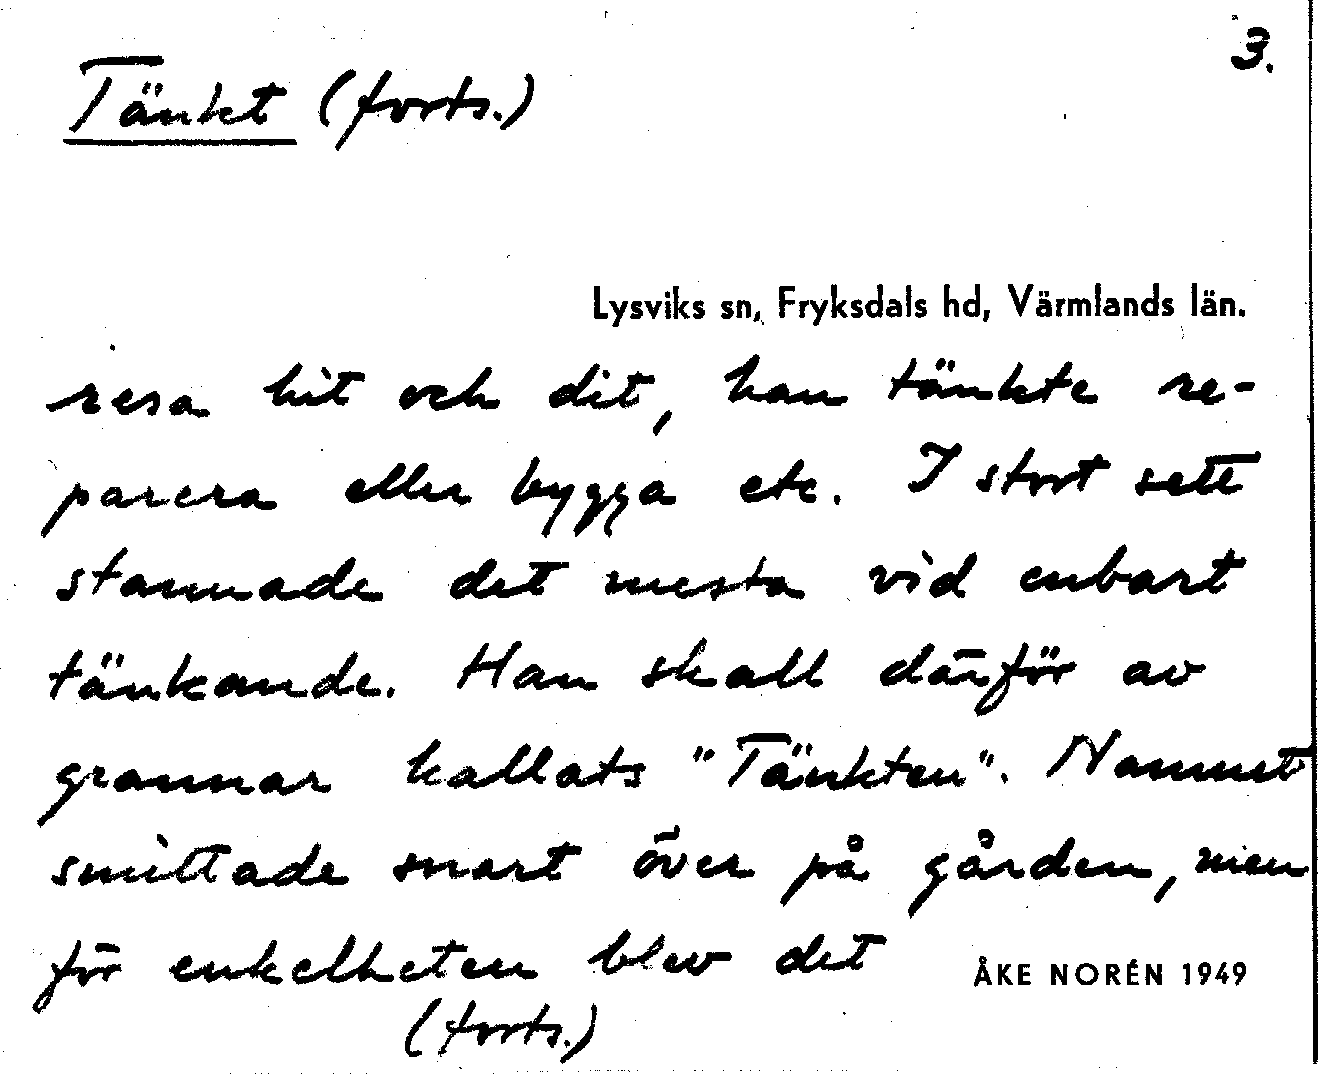 3.
Tänkt (forts.)
Lysviks sn, Fryksdals hd, Värmlands län.
resa hit och dit, han tänkte re-
parera eller bygga etc. I stort sett
stannade det mesta vid enbart
tänkande. Han skall därför av
grannar kallats "Tänkten". Namnet
smittade snart över på gården, men
för enkelheten blev det
ÅKE NORÉN 1949
(forts.)